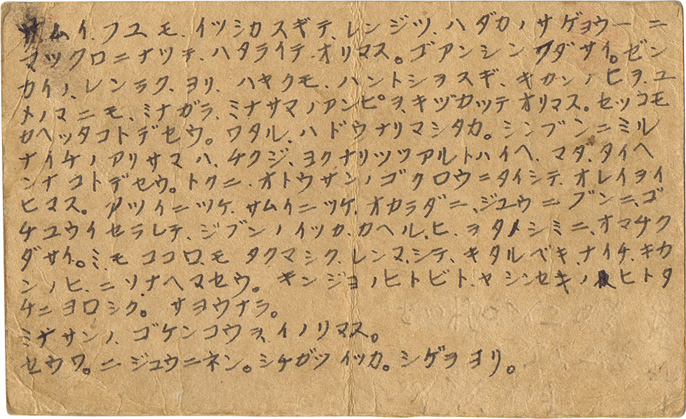 サムイ、フユ モ、イツシカ スギテ、レンジツ、ハダカノ サゲョウーニ
マックロニナツテ、ハタライテ、オリマス。ゴアンシン クダサイ。ゼン
カイノ、レンラク、ヨリ、ハヤクモ、ハントシヲスギ、キカンノ ヒヲ、ユ
メノマニモ、ミナガラ、ミナサマノアンピヲ、キヅカッテ オリマス。セツコモ
カヘッタコトデセウ。ワタル、ハ ドウナリマシタカ。シンブンニミル
ナイチノ アリサマ ハ、チクジ、ヨクナリツツアルトハイヘ、マダ、タイヘ
ンナ コトデセウ。トクニ、オトウサンノ ゴクロウニタイシテ、オレイヲイ
ヒマス。 アツイニツケ、サムイニツケ、オカラダニ、ジュウニ ブンニ、ゴ
チユウイセラレテ、ジブンノ イツカ、カヘル、ヒ、ヲタノシミニ、オマチク
ダサイ。ミ、モ ココロ、モ タクマシク、レンマ、シテ、キタルベキ ナイチ、キカ
ンノ ヒ、ニ ソナヘマセウ。 キンジョノ ヒトビト、ヤ シンセキノ ヒトタ
チニ ヨロシク。 サヨウナラ。
ミナサンノ、ゴケンコウヲ イノリマス。
セウワ。ニジュウニネン。シチガツ イツカ。シゲヲ ヨリ。